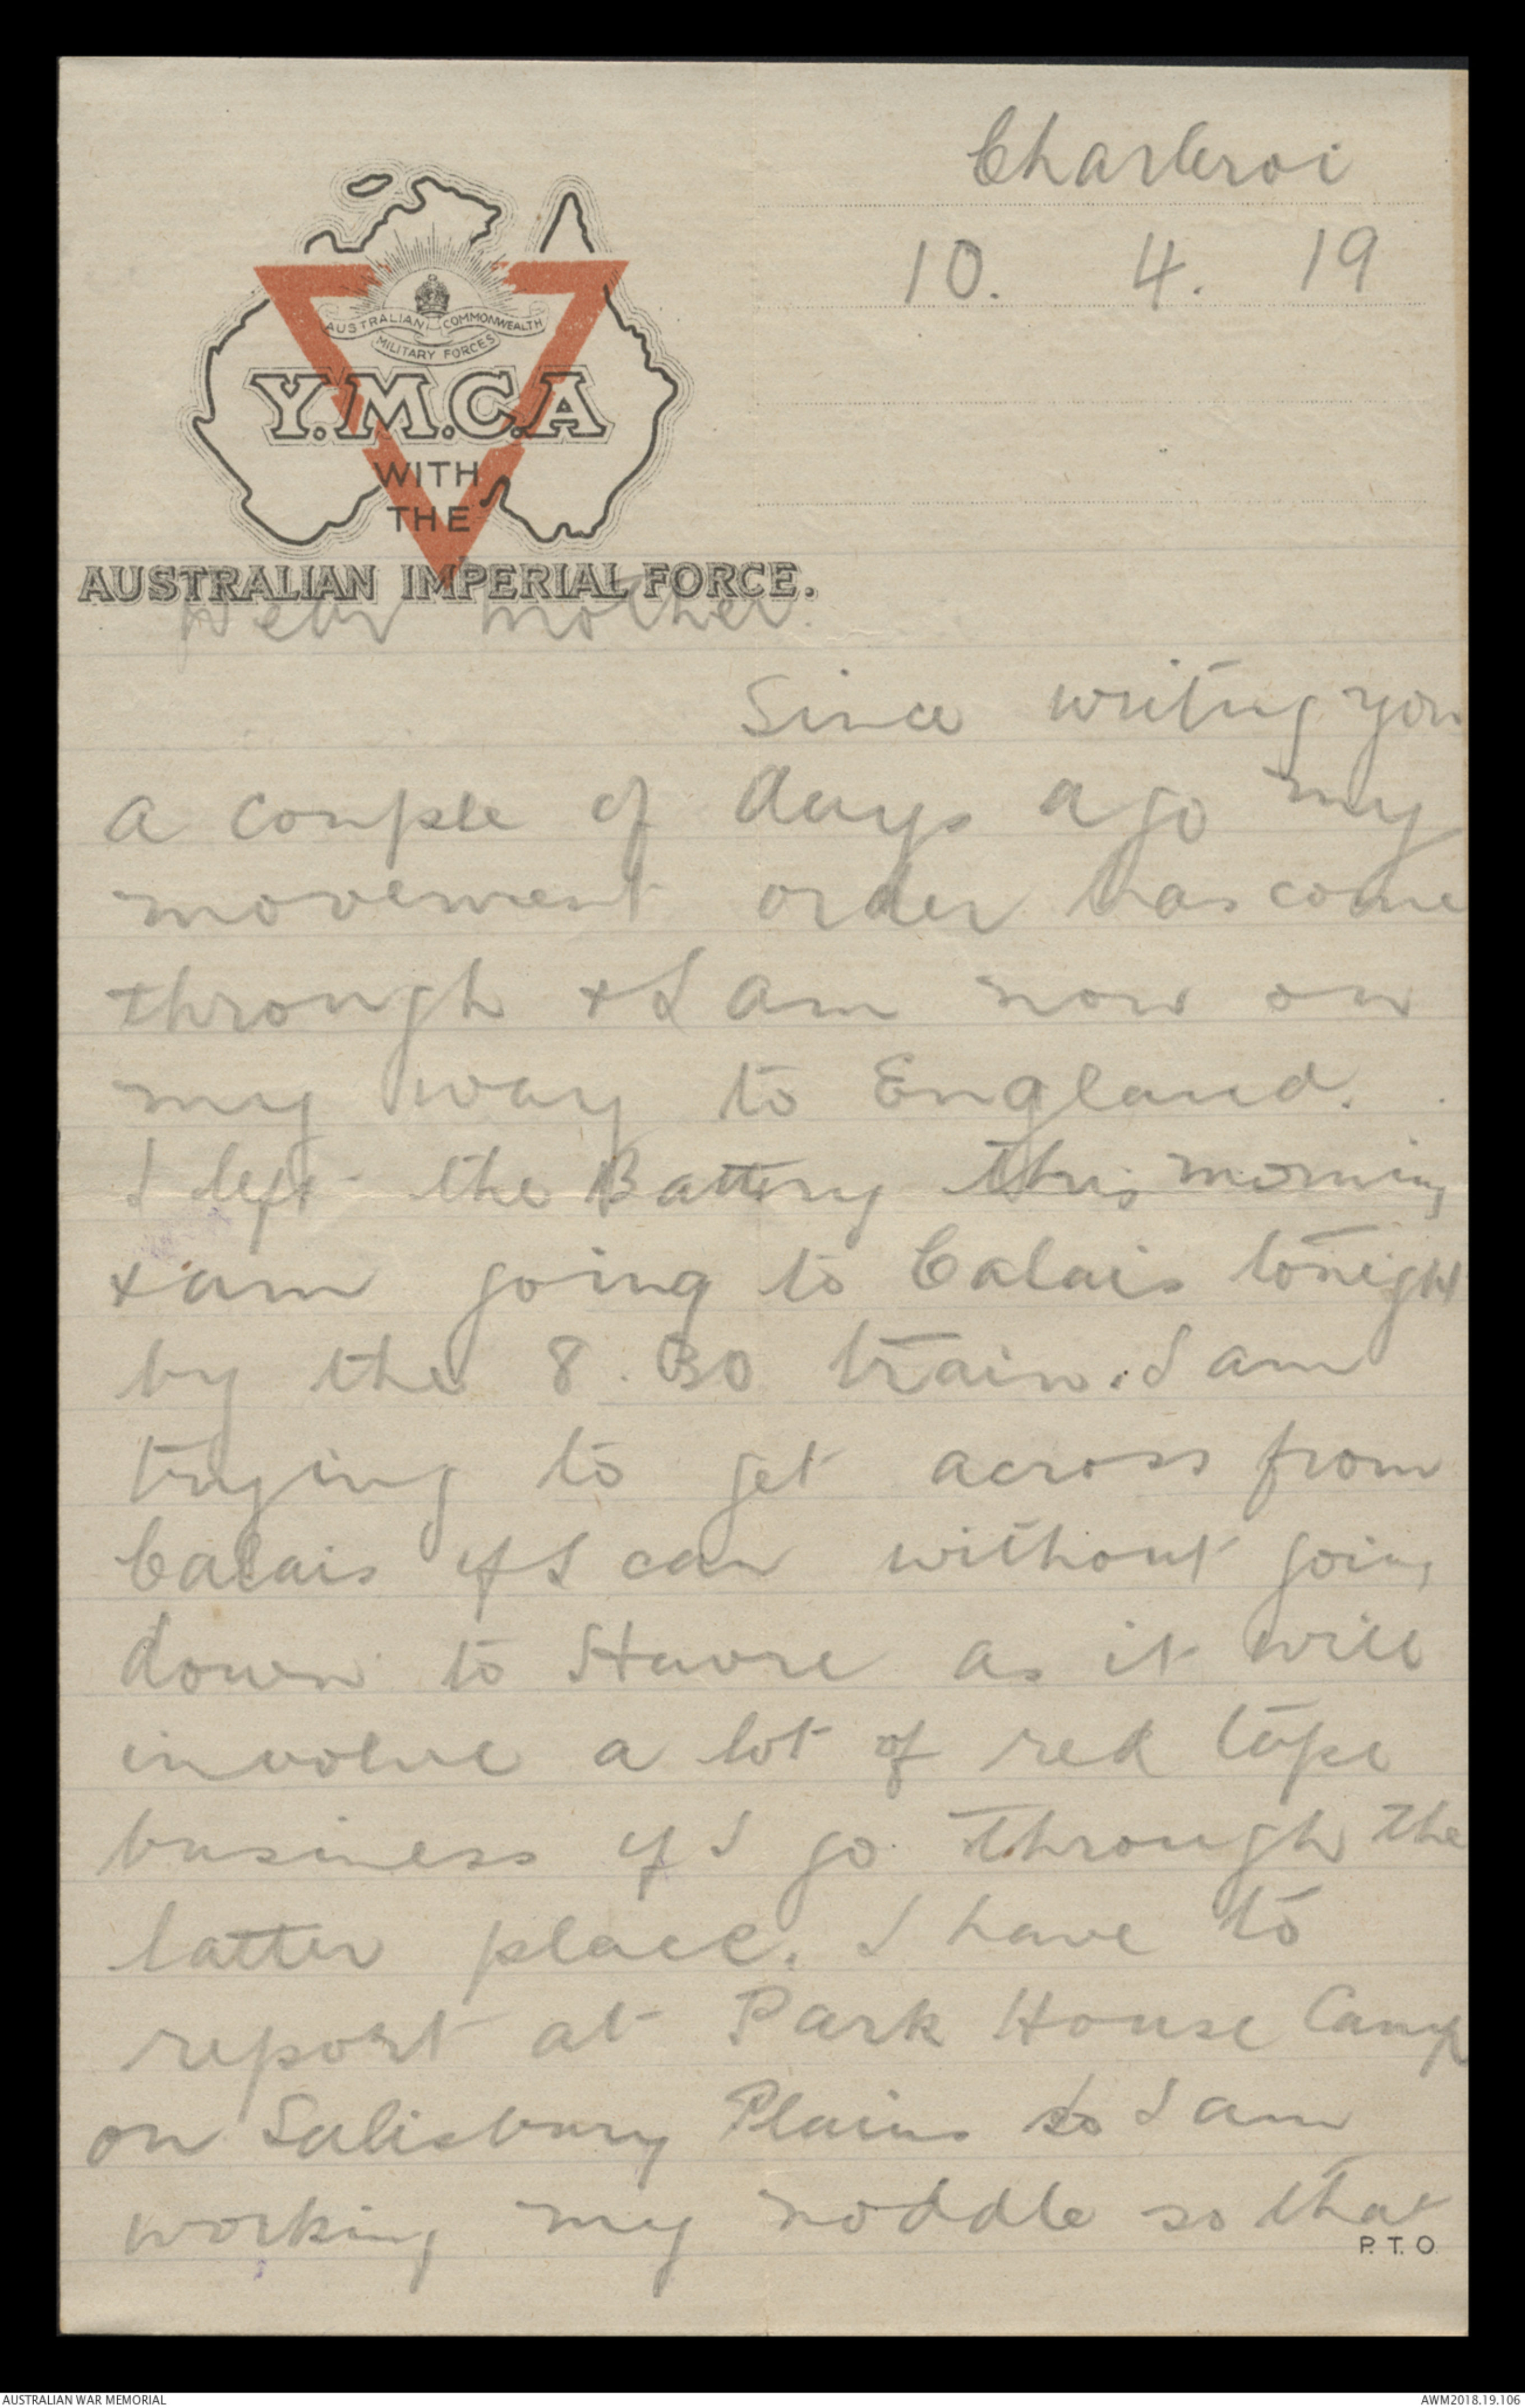 Charleroi
10. 4. 19
AUSTRALIAN COMMONWEALTH
MILITARY FORCES
Y.M.C.A
WITH
THE
AUSTRALIAN IMPERIAL FORCE.
Dear Mother.
Since writing you
a couple of days ago my
movement order has come
through & I am now on
my way to England.
I left the Battery this morning
& am going to Calais tonight
by the 8.30 train. I am
trying to get across from
Calais if I can without going
down to Havre as it will
involve a lot of red tape
business if I go through the
latter place. I have to
report at Park House Camp
on Salisbury Plains so I am
working my noddle so that
P.T.O.
AUSTRALIAN WAR MEMORIAL
AWM2018.19.106